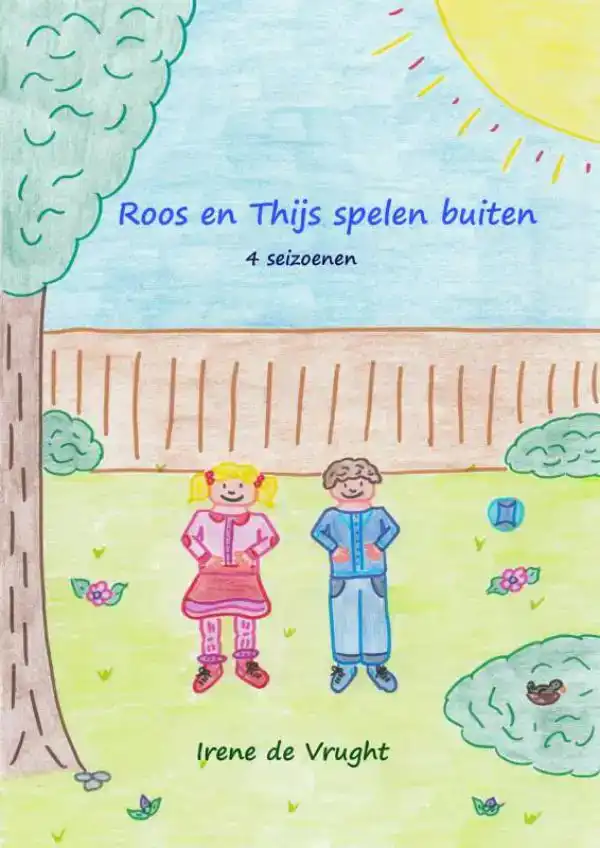 Roos en Thijs spelen buiten
4 seizoenen
Irene de Vrught